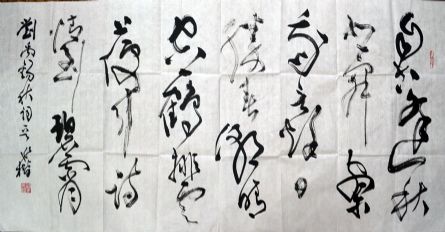 自古逢秋
悲寂寥
我言秋日
勝春朝晴
空一鶴排雲
上便引詩
情到碧霄
劉禹錫秋詞